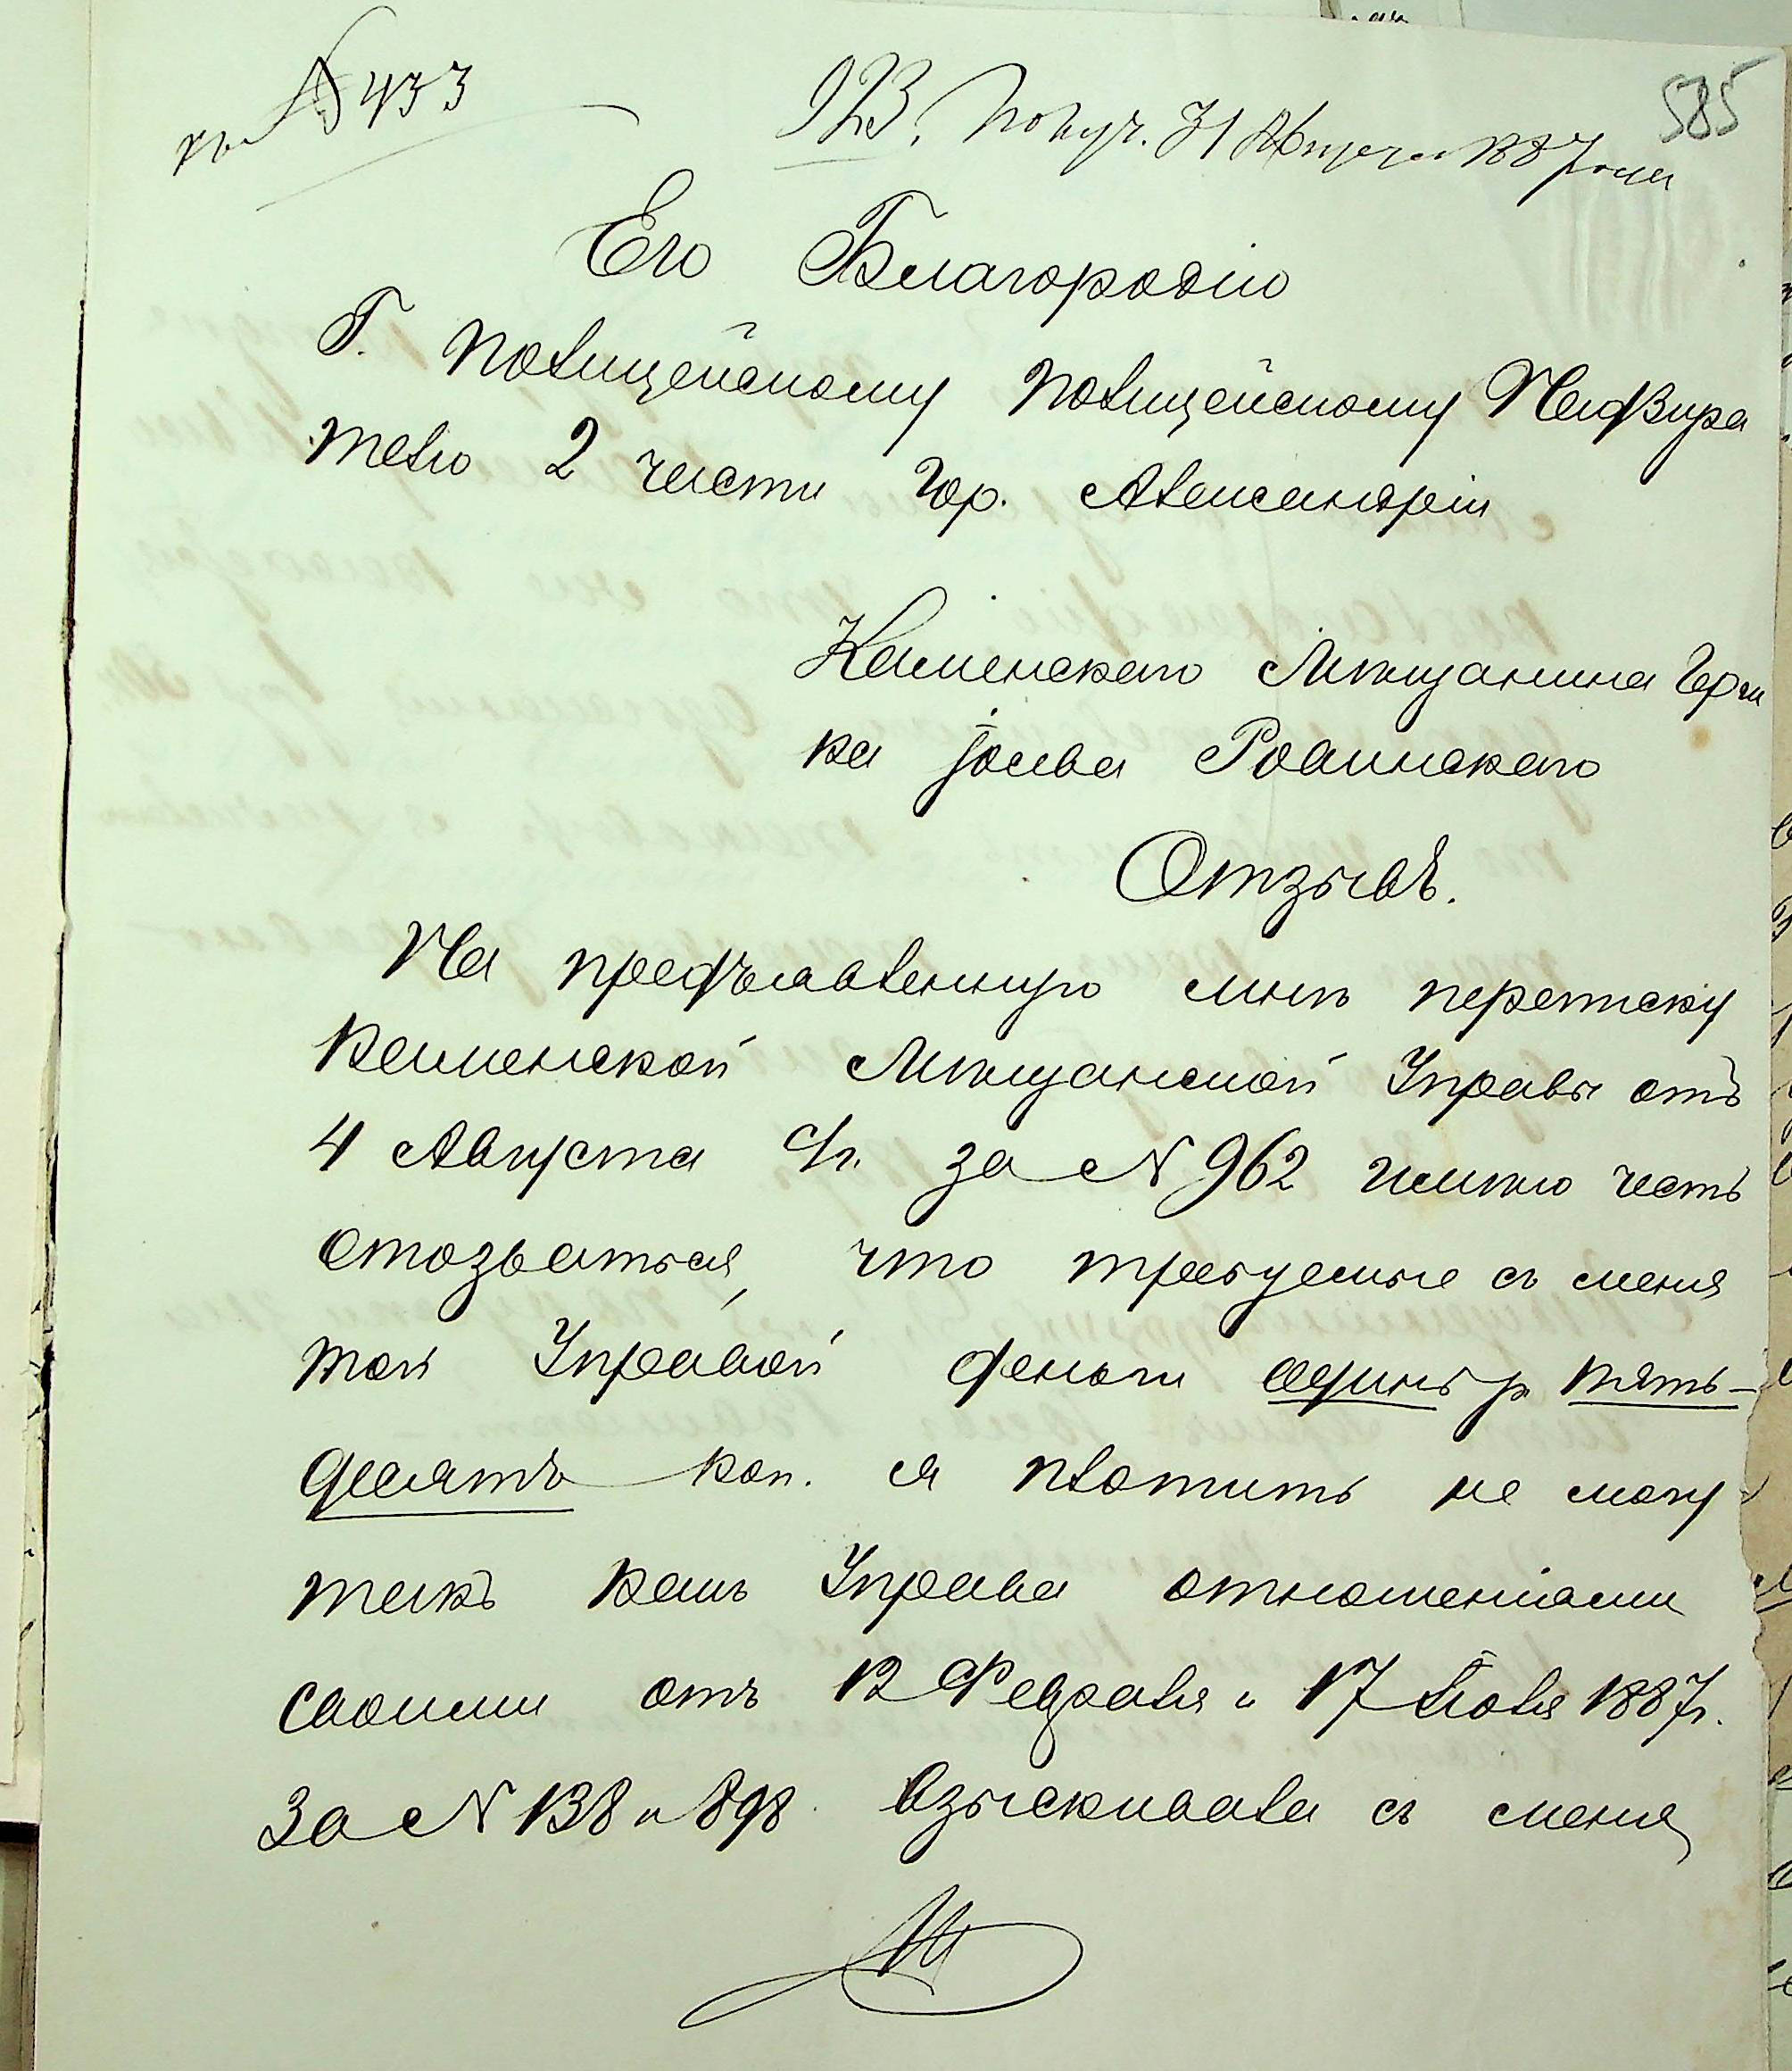 къ № 433
923. Получ. 31 Августа 1887 года
585
Его Благородію
Г. Полицейскому Полицейскому Надзира
телю 2 части Гор. Александріи
Каменскаго Мѣщанина Гер
ка
Отзывъ.
На предъявленную мнѣ переписку
Каменской Мѣщанской Управы отъ
4 Августа с/г. за № 962 имѣю честь
отозваться, что требуемые съ меня
той Управой деньги одинъ р. пять-
десятъ коп. я платить не могу
такъ какъ Управа отношеніями
своими отъ 12 Февраля и 17 Іюля 1887 г.
За № 138 и 898 взыскивала съ меня